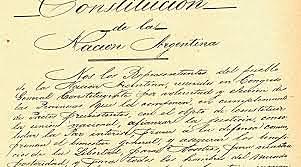 Constitución
de la
Nación Argentina
Nos los Representantes del pueblo
de la Nación Argentina, reunidos en Congreso
General Constituyente por voluntad y elección de
las Provincias que la componen, en cumplimiento
de Pactos preexistentes, con el objeto de constituir
la unión nacional, afianzar la justicia, conso-
lidar la Paz interior, proveer a la defensa común,
promover el bienestar general, y asegurar los
beneficios de la libertad, para
posteridad, y para todos los hombres del mundo